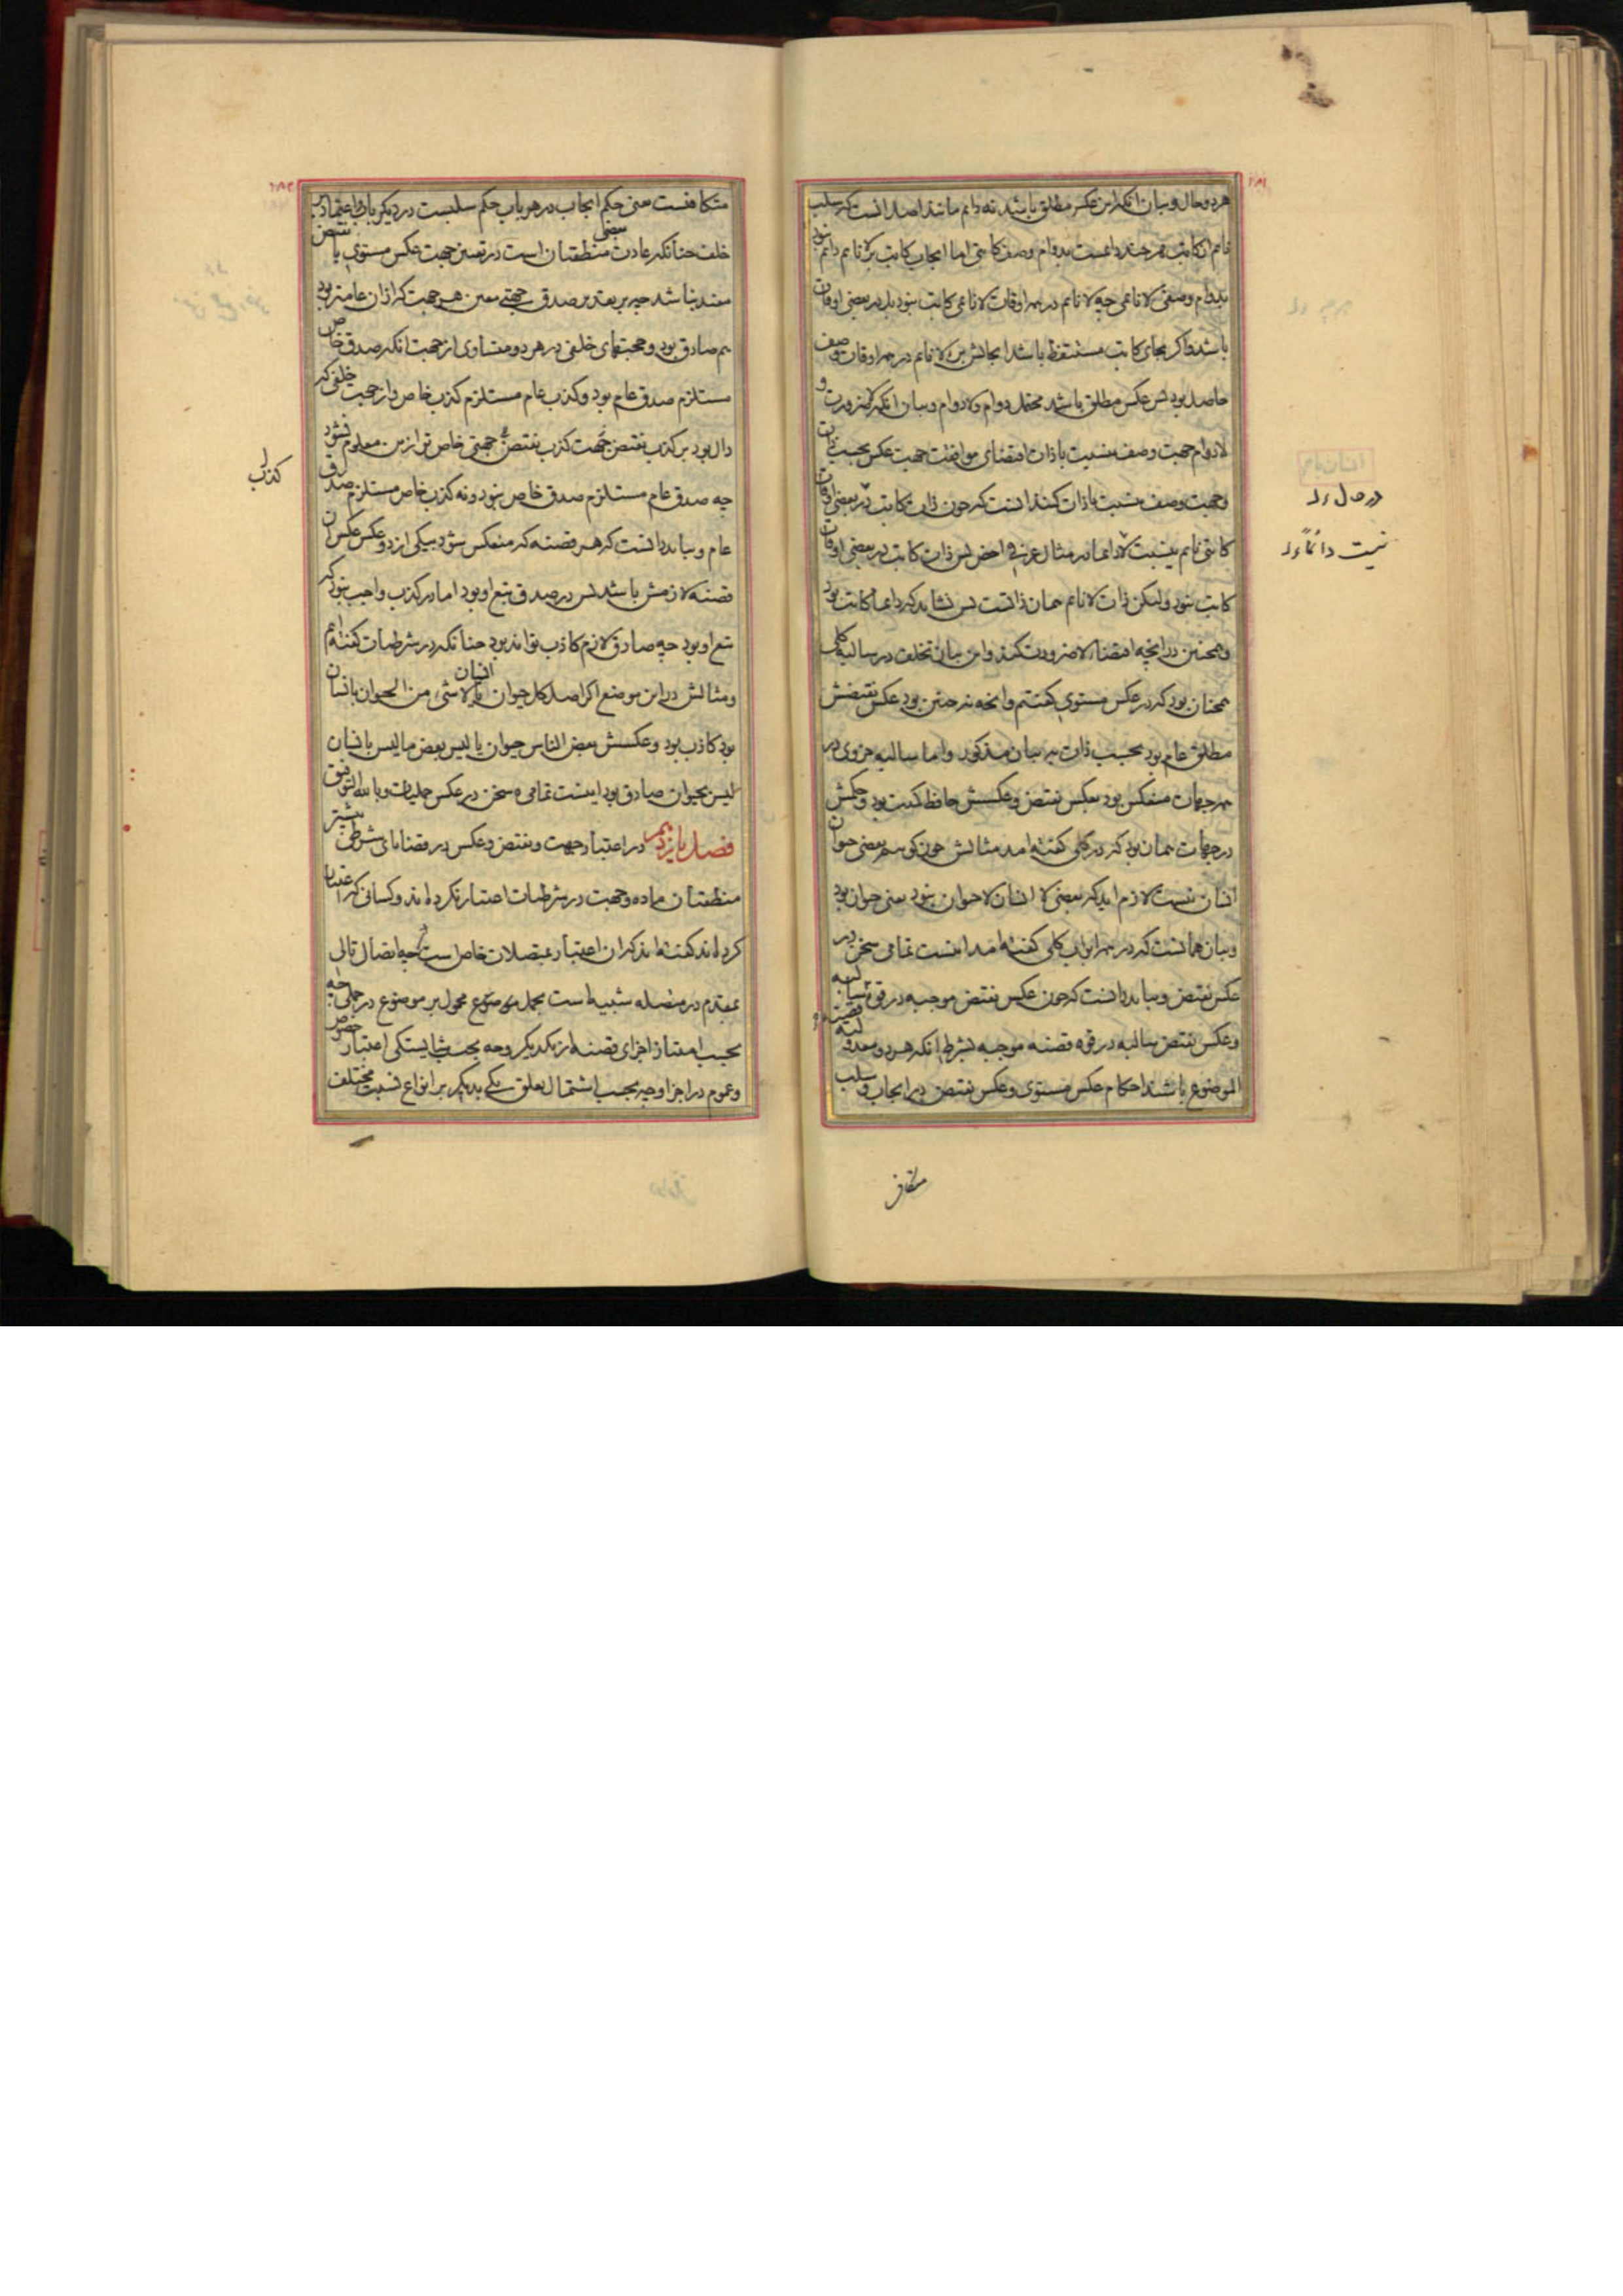 هر دو حال و بیان آنکه این عکس مطلق باشد نه دایم مانند اصل آنست که سلب
نایم از کاتب هر چند دایمست بدوام وصف کاتبی اما ایجاب کاتب بر لا نایم دایم نبود
بدوام وصفی لا نایمی چه لا نایم در همه اوقات لا نایمی کاتب نبود بل در بعضی اوقات
باشد و اگر بجای کاتب مستیقظ باشد ایجابش بر لا نایم در همه اوقات وصف
حاصل بود پس عکس مطلق باشد محتمل دوام و لا دوام و بیان آنکه لا ضرورت و
لا دوام جهت وصف بنسبت با ذات اقتضای موافقت جهت عکس بحسب ذات
و جهت وصف بنسبت با ذات کند آنست که چون ذات کاتب در بعضی اوقات
کاتبی نایم نیست لا دایما در مثال عرفی اخص پس ذات کاتب در بعضی اوقات
کاتب نبود ولیکن ذات لا نایم همان ذاتست پس نشاید که دایما کاتب بود
و همچنین در آنچه اقتضاء لا ضرورت کند و این بیان تخلف در سالبه کلی
همچنان بود که در عکس مستوی گفتیم و آنچه نه چنین بود عکس نقیضش
مطلق عام بود بحسب ذات بر بیان مذکور و اما سالبه جزوی در
همه جهات منعکس بود بعکس نقیض و عکسش حافظ کمیت بود و حکمش
در جهات همان بود که در کلی گفته آمد مثالش چون گوییم بعضی حیوان
انسان نیست لازم آید که بعضی لا انسان لا حیوان نبود یعنی حیوان بود
و بیان همانست که در همه ابواب کلی گفته آمد اینست تمامی سخن در
عکس نقیض و بباید دانست که چون عکس نقیض موجبه در قوه سالبه
و عکس نقیض سالبه در قوه قضیه موجبه بشرط آنکه هر دو معدولة
الموضوع باشند احکام عکس مستوی و عکس نقیض در ایجاب و سلب
متکافی
در حال ول
نیست دائما ول
متکافیست یعنی حکم ایجاب در هر باب حکم سلبست در دیگر باب و اعتماد بر
خلف چنانکه عادت بعضی منطقیان است در تعیین جهت عکس مستوی یا نقیض
مفید نباشد چه بر تقدیر صدق جهتی معین هر جهت که ازان عامتر بود
هم صادق بود و حجتهای خلفی در هر دو متساوی از جهت آنکه صدق خاص
مستلزم صدق عام بود و کذب عام مستلزم کذب خاص و از حجت خلفی که
دال بود بر کذب نقیض جهت کذب نقیض جهتی خاص تر ازین معلوم نشود
چه صدق عام مستلزم صدق خاص نبود و نه کذب خاص مستلزم صدق
کذب
عام و بباید دانست که هر قضیه که منعکس شود بیکی از دو عکس عکس آن
قضیه لازمش باشد پس در صدق تبع او بود اما در کذب واجب نبود که
تبع او بود چه صادق لازم کاذب تواند بود چنانکه در شرطیات گفته ایم
و مثالش در این موضع اگر اصل کل حیوان انسان یا لا شیء من الحیوان بانسان
بود کاذب بود و عکسش بعض الناس حیوان یا لیس بعض ما لیس بانسان
لیس بحیوان صادق بود اینست تمامی سخن در عکس حملیات و بالله التوفیق
فصل یازدهم در اعتبار جهت و نقیض و عکس در قضایای شرطی بیشتر
منطقیان ماده و جهت در شرطیات اعتبار نکرده اند و کسانی که اعتبار
کرده اند گفته اند که آن اعتبار بمتصلات خاص است چه اتصال تالی
بمقدم در متصله شبیه است بحمل محمول بر موضوع در حملی چه
بحسب امتیاز اجزای قضیه از یکدیگر و چه بحسب شایستگی اعتبار خصوص
و عموم در اجزا و چه بحسب اشتمال تعلق یکی بدیگر بر انواع نسبت مختلف